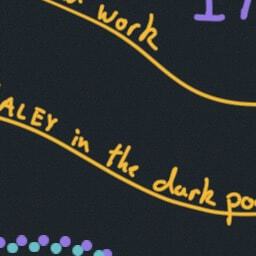 work
17
ALEY in the dark po